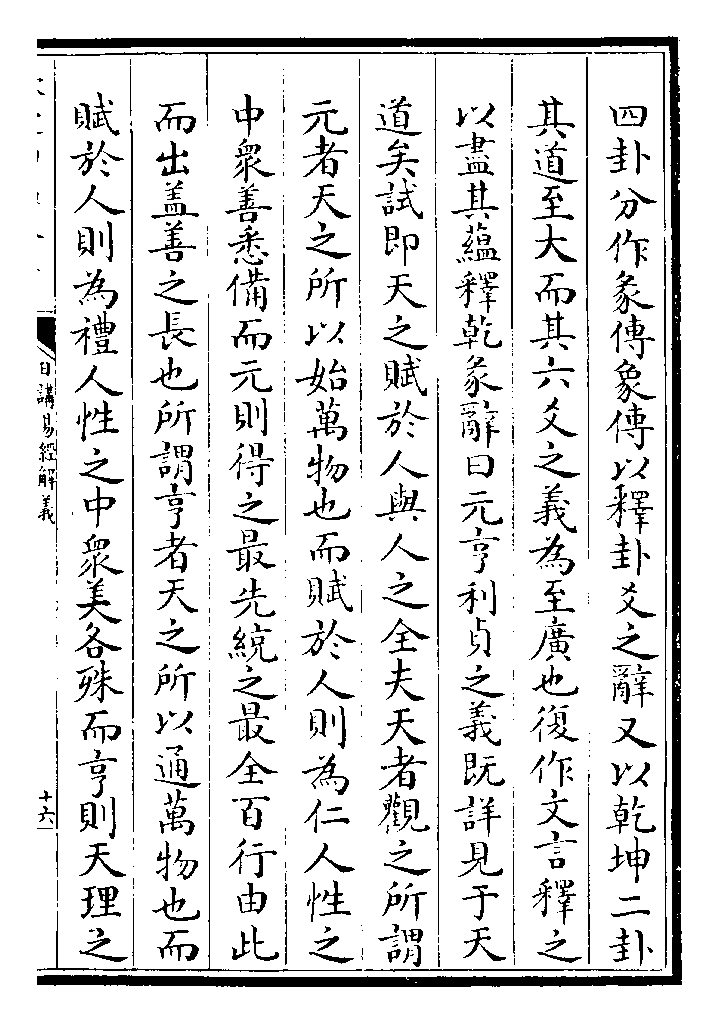 四卦分作彖傳象傳以釋卦爻之辭又以乾坤二卦
其道至大而其六爻之義為至廣也復作文言釋之
以盡其蘊釋乾彖辭曰元亨利貞之義既詳見于天
道矣試即天之賦於人與人之全夫天者觀之所謂
元者天之所以始萬物也而賦於人則為仁人性之
中衆善悉備而元則得之最先統之最全百行由此
而出盖善之長也所謂亨者天之所以通萬物也而
賦於人則為禮人性之中衆美各殊而亨則天理之
日講易經解義
十六